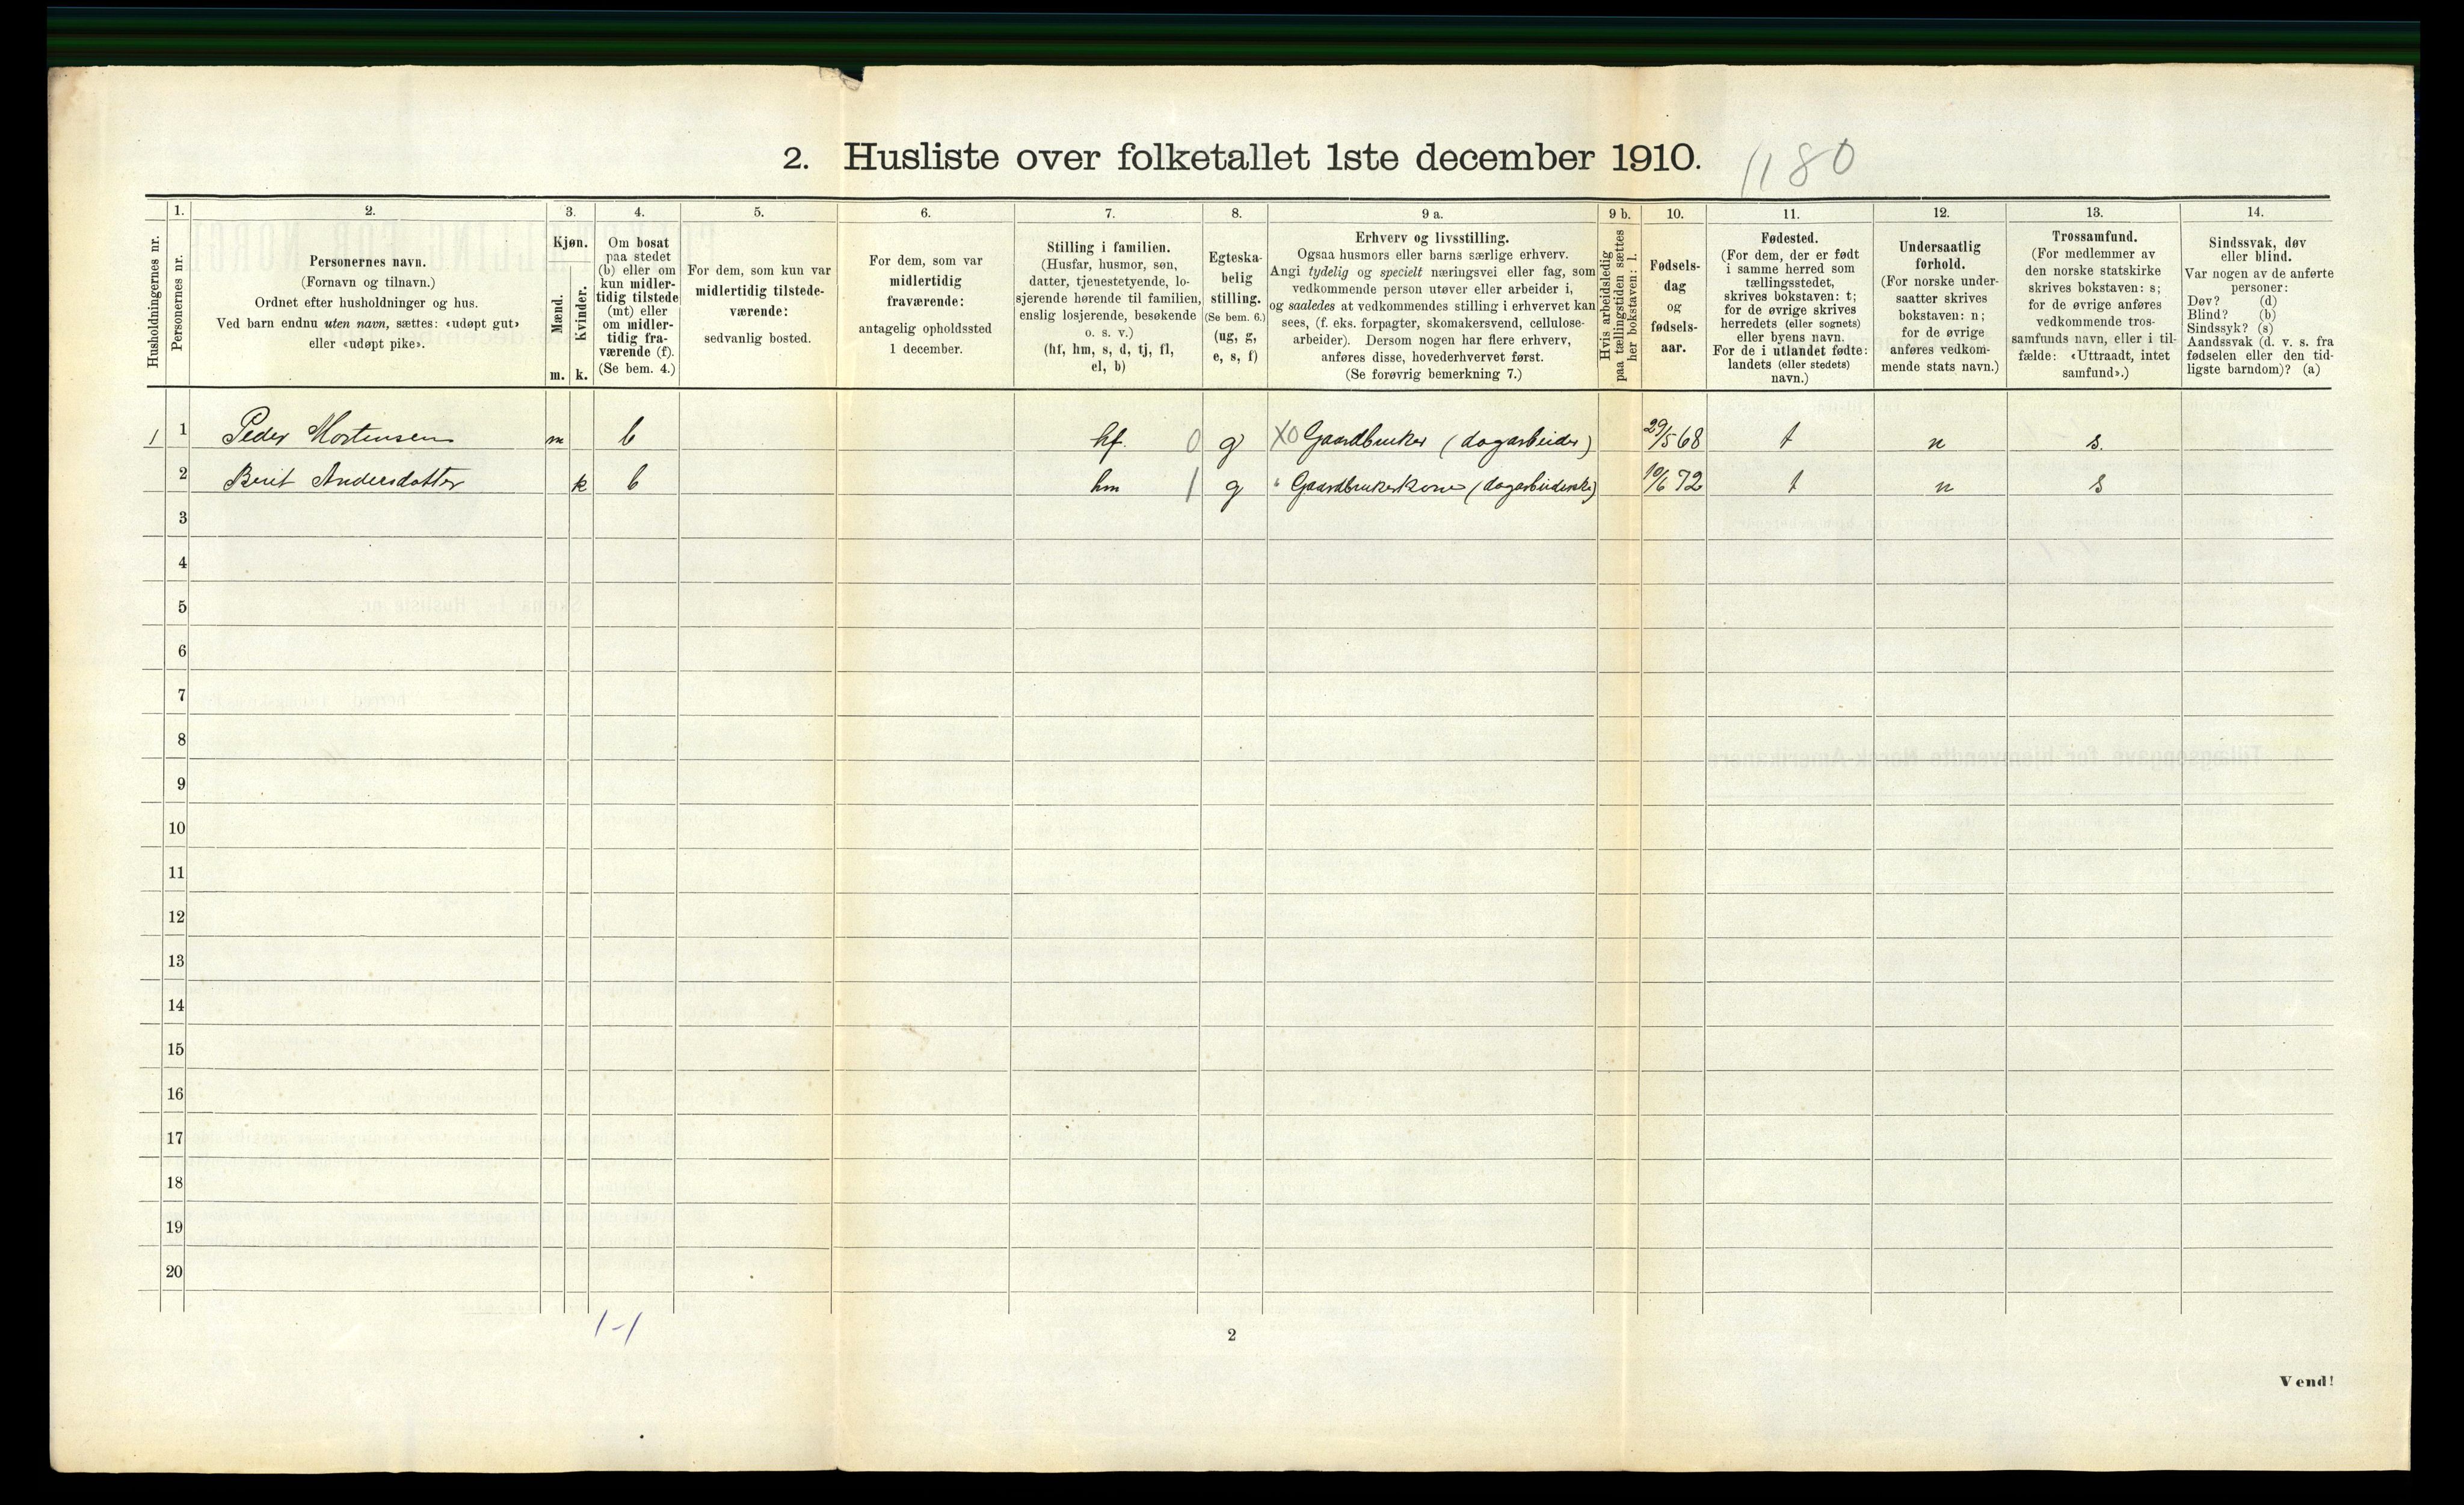 2. Husliste over folketallet 1ste december 1910. 1180
Husholdningernes nr.
1.
Personernes nr.
2.
Personernes navn.
(Fornavn og tilnavn.)
Ordnet efter husholdninger og hus.
Ved barn endnu uten navn, sættes: «udøpt gut»
eller «udøpt pike».
3.
Kjøn.
Mænd.
m.
Kvinder.
k.
4.
Om bosat
paa stedet
(b) eller om
kun midler-
tidig tilstede
(mt) eller
om midler-
tidig fra-
værende (f).
(Se bem. 4.)
5.
For dem, som kun var
midlertidig tilstede-
værende:
sedvanlig bosted.
6.
For dem, som var
midlertidig
fraværende:
antagelig opholdssted
1 december.
7.
Stilling i familien.
(Husfar, husmor, søn,
datter, tjenestetyende, lo-
sjerende hørende til familien,
enslig losjerende, besøkende
o. s. v.)
(hf, hm, s, d, tj, fl,
el, b)
8.
Egteska-
belig
stilling.
(Se bem. 6.)
(ug, g,
e, s, f)
9 a.
Erhverv og livsstilling.
Ogsaa husmors eller barns særlige erhverv.
Angi tydelig og specielt næringsvei eller fag, som
vedkommende person utøver eller arbeider i,
og saaledes at vedkommendes stilling i erhvervet kan
sees, (f. eks. forpagter, skomakersvend, cellulose-
arbeider). Dersom nogen har flere erhverv,
anføres disse, hovederhvervet først.
(Se forøvrig bemerkning 7.)
9 b.
Hvis arbeidsledig
paa tællingstiden sættes
her bokstaven: l.
10.
Fødsels-
dag
og
fødsels-
aar.
11.
Fødested.
(For dem, der er født
i samme herred som
tællingsstedet,
skrives bokstaven: t;
for de øvrige skrives
herredets (eller sognets)
eller byens navn.
For de i utlandet fødte:
landets (eller stedets)
navn.)
12.
Undersaatlig
forhold.
(For norske under-
saatter skrives
bokstaven: n;
for de øvrige
anføres vedkom-
mende stats navn.)
13.
Trossamfund.
(For medlemmer av
den norske statskirke
skrives bokstaven: s;
for de øvrige anføres
vedkommende tros-
samfunds navn, eller i til-
fælde: «Uttraadt, intet
samfund».)
14.
Sindssvak, døv
eller blind.
Var nogen av de anførte
personer:
Døv? (d)
Blind? (b)
Sindssyk? (s)
Aandssvak (d. v. s. fra
fødselen eller den tid-
ligste barndom)? (a)
1 1 Peder Mortensen m b hf. 0 g X0 Gaardbruker (dagarbeider) 29/5 68 t n s.
2 Berit Andersdatter k b hm 1 g " Gaardbrukerkone (dagarbeidersk) 10/6 72 t n s
3
4
5
6
7
8
9
10
11
12
13
14
15
16
17
18
19
20
1-1
2
Vend!